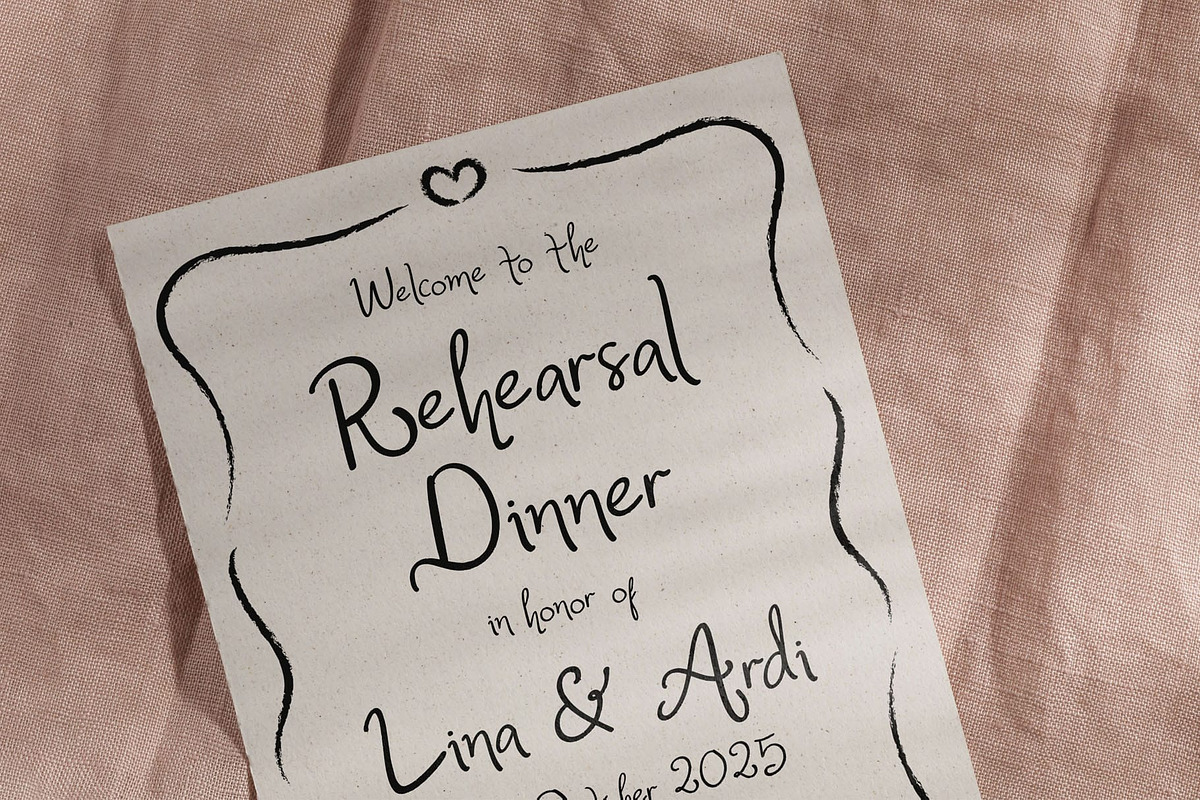 Welcome to the
Rehearsal
Dinner
in honor of
Lina & Ardi
2025